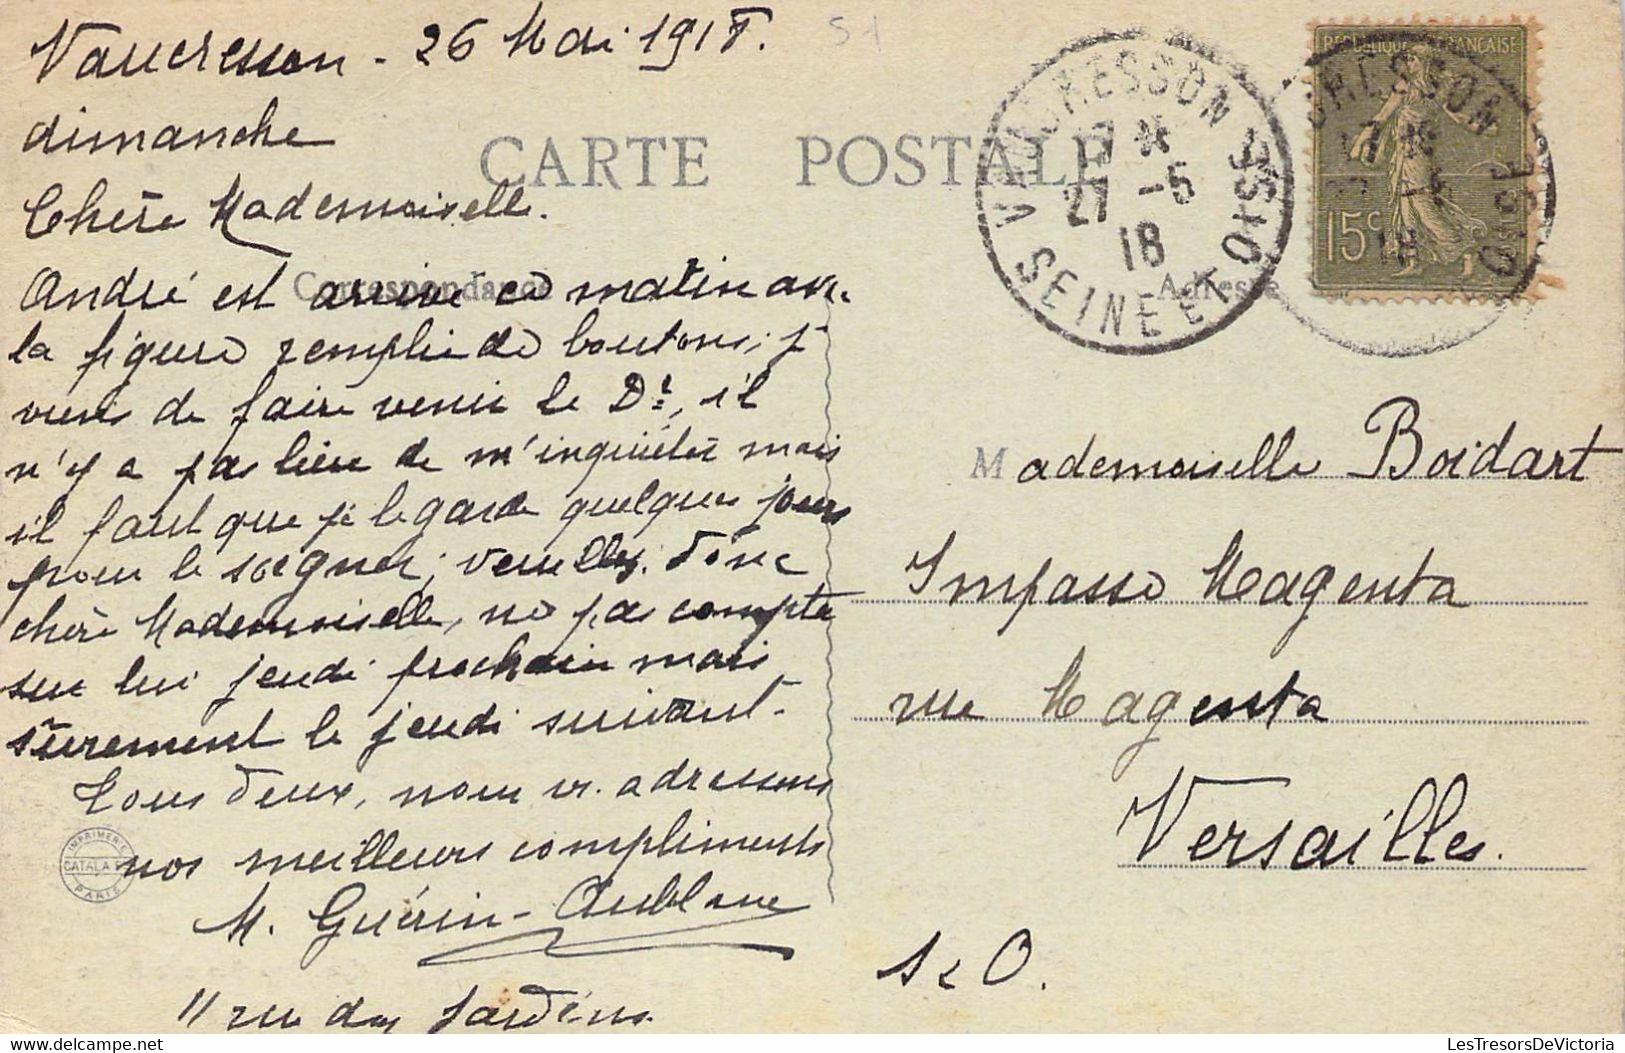 Vaucresson - 26 Mai 1918.
51
dimanche
CARTE POSTALE
Chère Mademoiselle.
Correspondance
André est arrivé ce matin av.
la figure remplie de boutons; j'
viens de faire venir le Dr, il
n'y a pas lieu de m'inquiéter mais
il faut que je le garde quelques jours
pour le soigner; veuillez donc
chère Mademoiselle, ne pas compter
sur lui jeudi prochain mais
sûrement le jeudi suivant.
Tous deux, nous vs. adressons
nos meilleurs compliments
M. Guérin-Aublane
11 rue des Jardins
IMPRIMERIE
CATALA
PARIS
VAUCRESSON
17 *
27 -5
18
SEINE ET OISE
REPUBLIQUE FRANÇAISE
15c
CRESSON
17
18
OISE
Adresse
Mademoiselle Boidart
Impasse Magenta
rue Magenta
Versailles.
S & O.
delcampe.net
LesTresorsDeVictoria